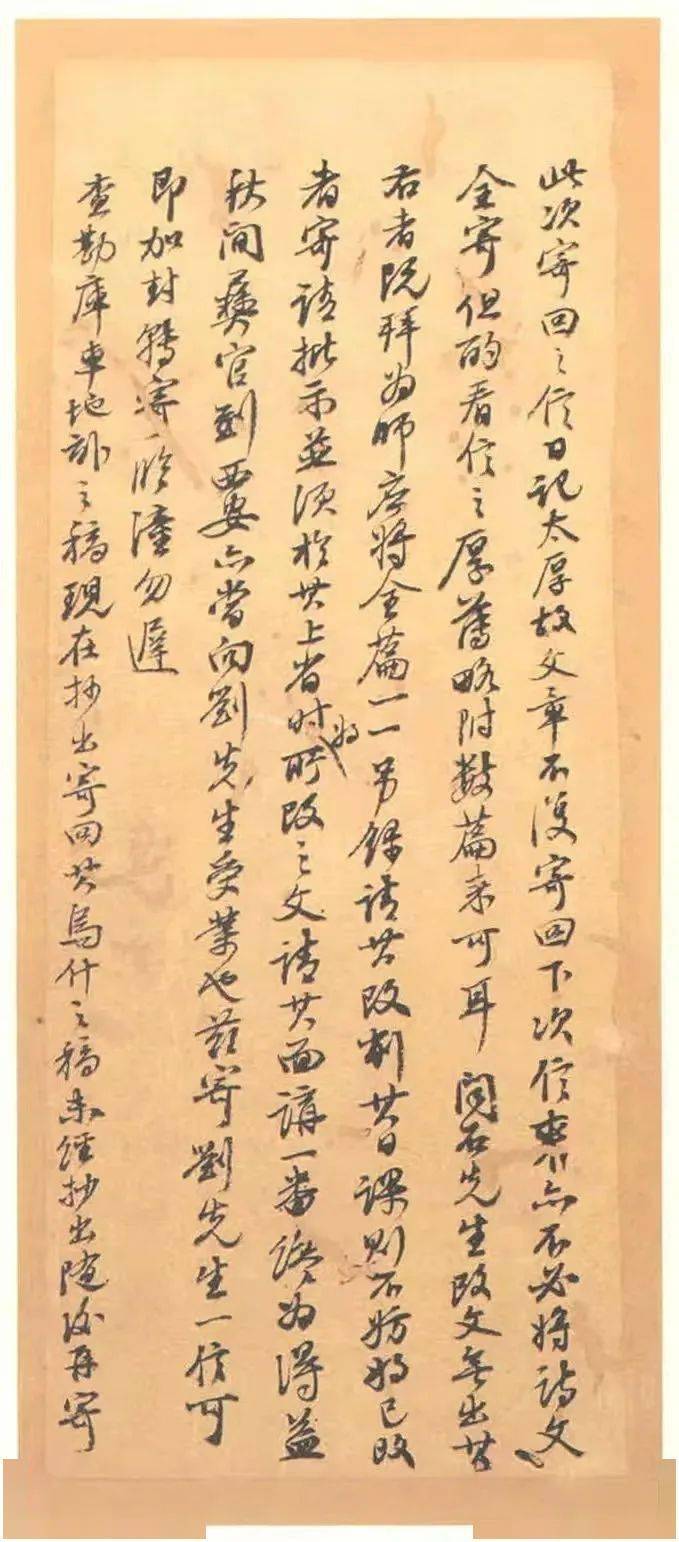 此次寄回之信日記太厚故文章不復寄回下次信來亦不必將詩文
全寄但酌看信之厚薄略附數篇來可耳聞石先生改文無出其
右者既拜為師應將全篇一一另錄請其改削其日課則不妨將已改
者寄請批示並須於其上省時將所改之文請其面講一番纔為得益
秋間彝官到西安亦當向劉先生受業也茲寄劉先生一信可
即加封轉寄臨潼勿遲
查勘庫車地畝之稿現在抄出寄回其烏什之稿未經抄出隨後再寄